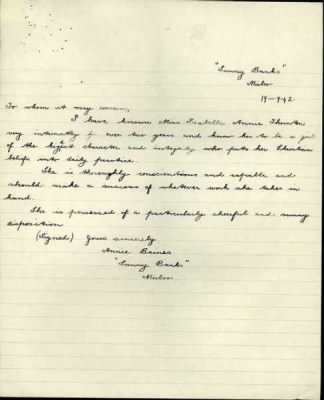 "Sunny Banks"
19-9-42
To whom it may concern,
I have known Miss Isabelle Annie Thornton
very intimately for over two years and know her to be a girl
of the highest character and integrity who puts her Christian
beliefs into daily practice.
She is thoroughly conscientious and capable and
should make a success of whatever work she takes in
hand.
She is possessed of a particularly cheerful and sunny
disposition
(Signed) Yours sincerely
Annie Baines
"Sunny Banks"